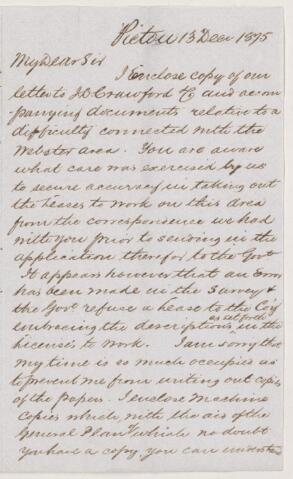 Pictou 13 Decr 1875
My Dear Sir
I enclose copy of our
letter to J D Crawford & accom-
panying documents relative to a
difficulty connected with the
Webster area. You are aware
what care was exercised by us
to secure accuracy in taking out
the leases to work on this area
from the correspondence we had
with you prior to sending in the
application therefor, to the Govt
It appears however that an Error
has been made in the Survey &
the Govt refuse a lease to the Coy
embracing the description as set forth in the
licenses to work. I am sorry that
my time is so much occupied as
to prevent me from writing out copies
of the Papers. I enclose Machine
Copies which, with the aid of the
General Plan of which no doubt
you have a copy, you can understand